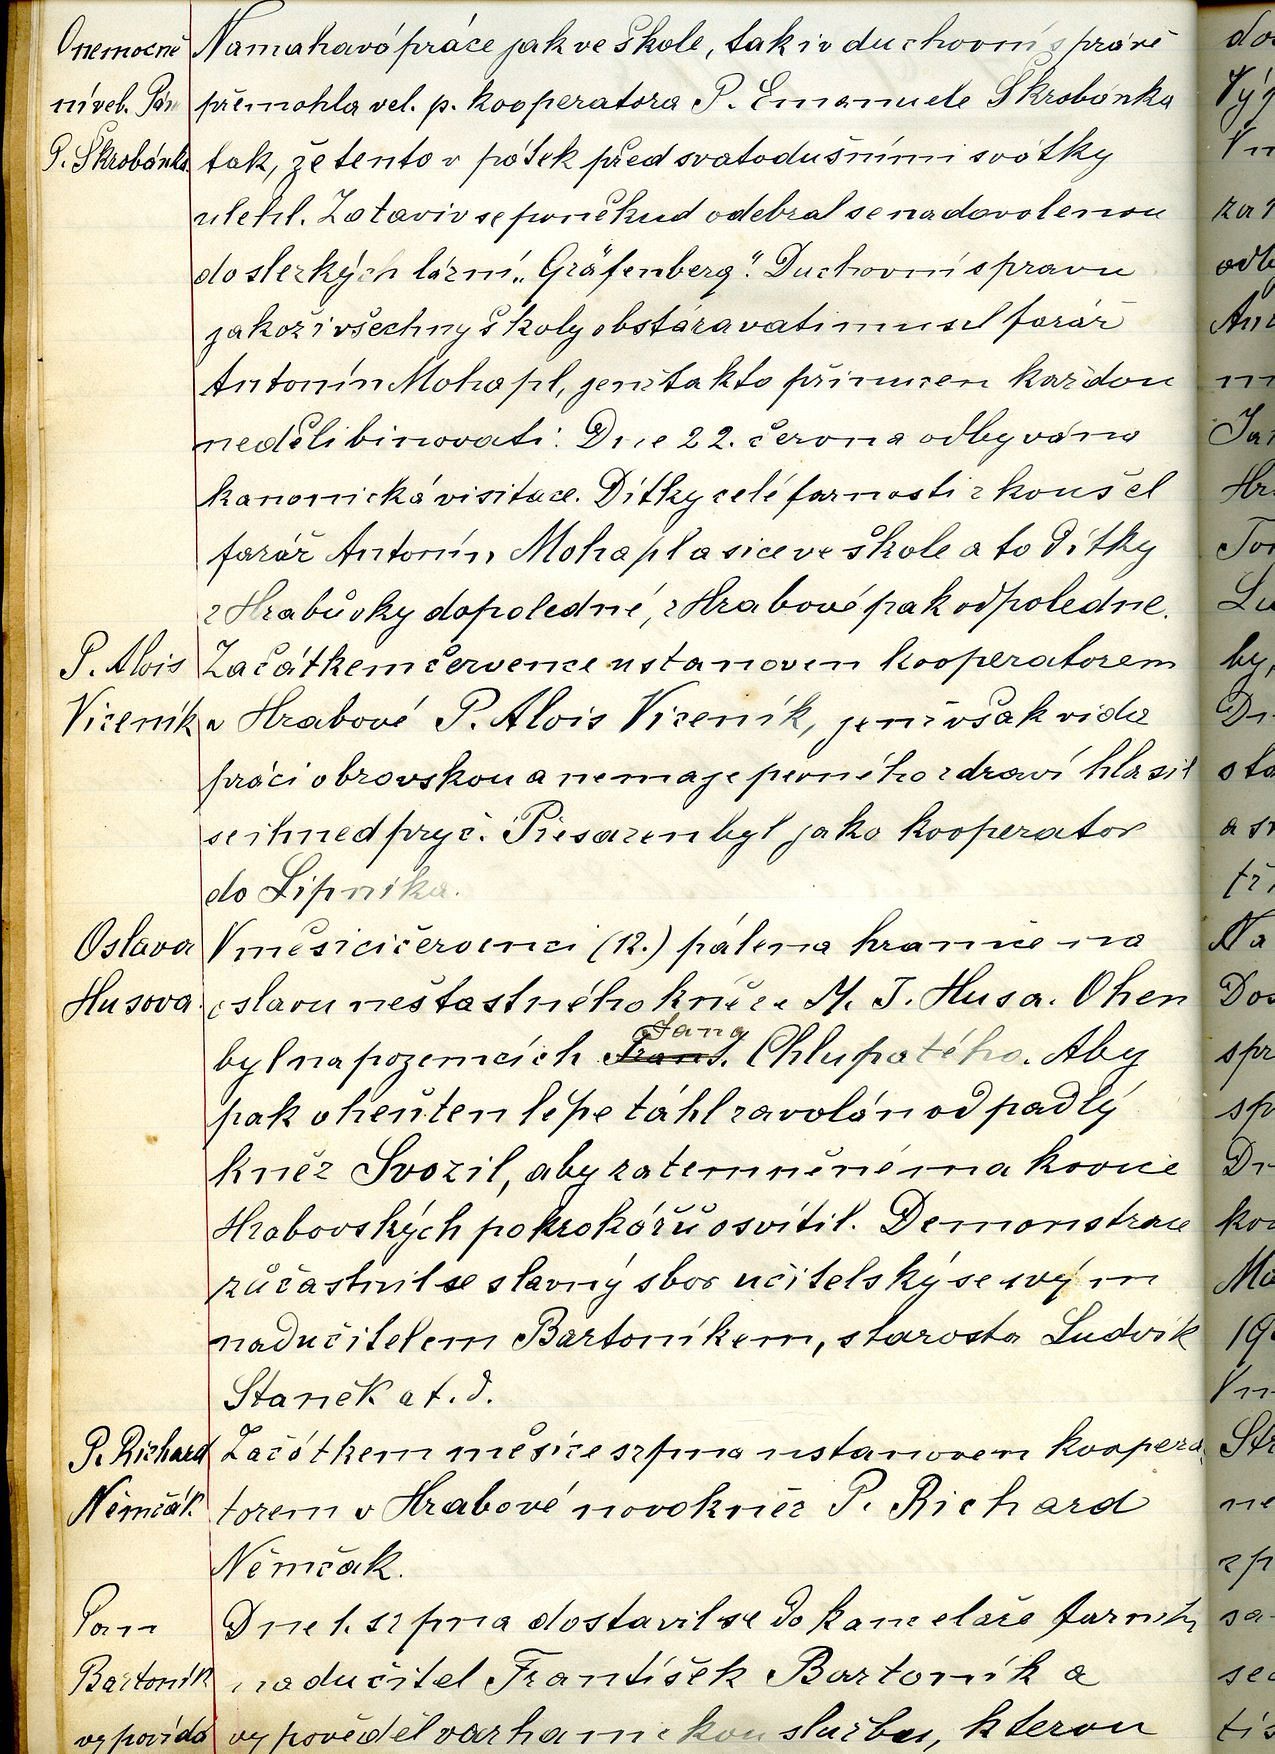 Onemocně
ní vel. Pán
P. Škrobánka
Namahavá práce jak ve škole, tak i v duchovní správě
přemohla vel. p. kooperatora P. Emanuele Škrobánka
tak, že tento v pátek před svatodušními svátky
ulehl. Zotaviv se poněkud odebral se na dovolenou
do slezkých lázní „Gräfenberg". Duchovní spravu
jakož i všechny školy obstáravati musel farář
Antonín Mohapl, jenž takto přinucen každou
neděli binovati. Dne 22. června odbyvána
kanonická visitace. Dítky celé farnosti zkoušel
farář Antonín Mohapl a sice ve škole a to dítky
z Hrabůvky dopoledne, z Hrabové pak odpoledne.
P. Alois
Viceník
Začátkem července ustanoven kooperatorem
v Hrabové P. Alois Viceník, jenž však vida
práci obrovskou a nemaje pevného zdraví hlasil
se ihned pryč. Přesazen byl jako kooperator
do Lipníka.
Oslava
Husova.
V měsíci červenci (12.) pálena hranice na
oslavu nešťastného kněze M. J. Husa. Oheň
byl na pozemcích Frant. Jana Chlupatého. Aby
pak oheň ten lépe táhl zavolán odpadlý
kněz Svozil, aby zatemněné makovice
Hrabovských pokrokářů osvítil. Demonstrace
zůčastnil se slavný sbor učitelský se svým
nadučitelem Bartoníkem, starosta Ludvík
Staněk a t. d.
P. Richard
Němčák
Začátkem měsíce srpna ustanoven koopera
torem v Hrabové novokněz P. Richard
Němčak.
Pan
Bartoník
vypovídá
Dne 1. srpna dostavil se do kanceláře farních
nadučitel František Bartoník a
vypověděl varhanickou službu, kterou